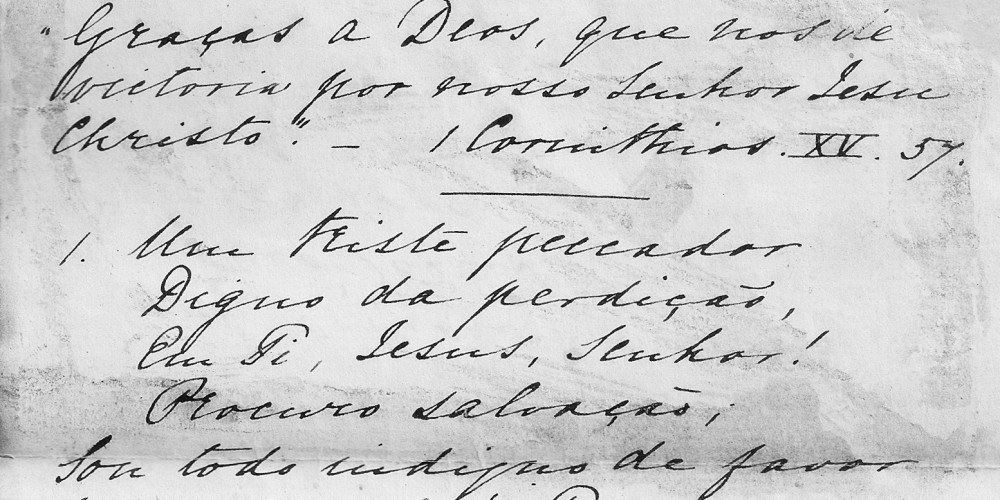 "Graças a Deos, que nos dê
victoria por nosso Senhor Jesu
Christo". — 1 Corinthios. XV. 57.
1. Um triste peccador
Digno da perdição,
Em Ti, Jesus, Senhor!
Procuro salvação;
Sou todo indigno de favor